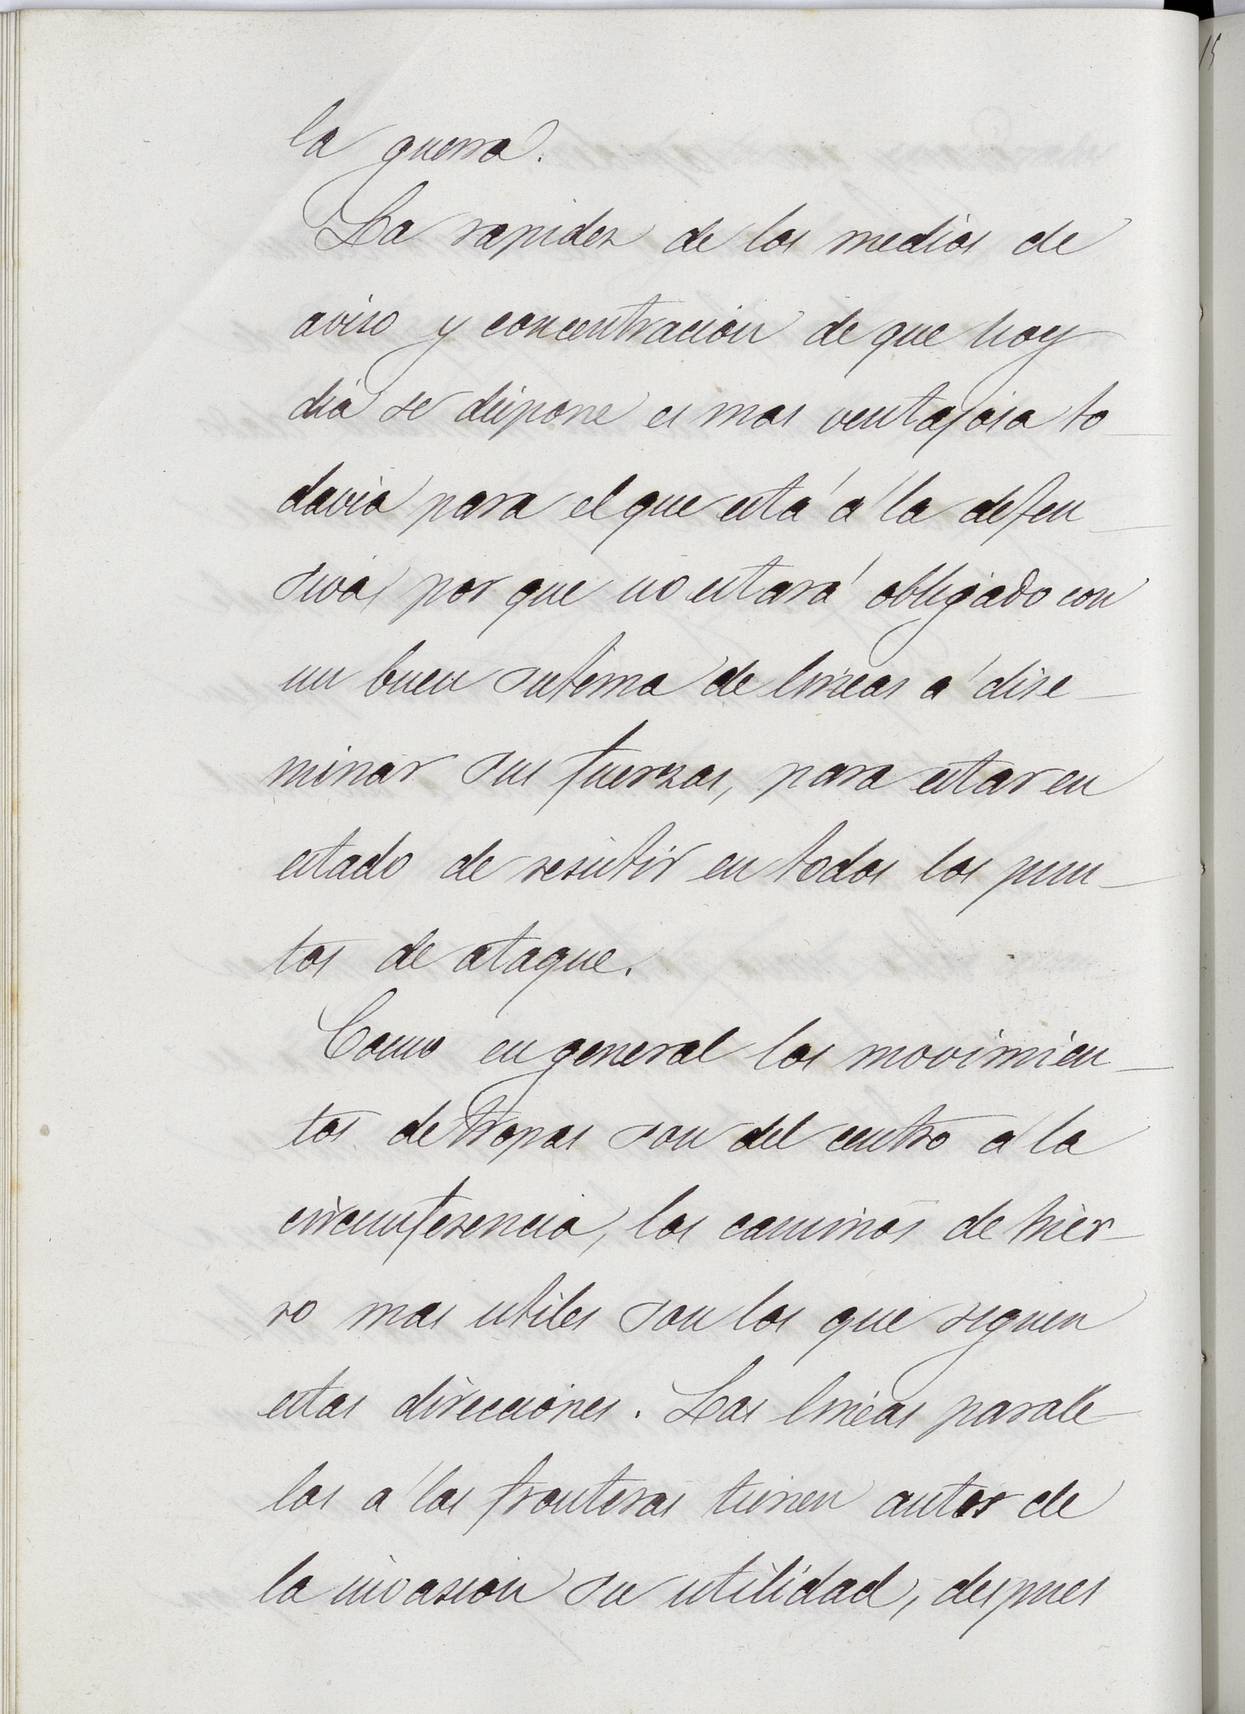 la guerra.
La rapidez de los medios de
aviso y concentracion de que hoy
dia se dispone es mas ventajosa to
davia para el que está á la defen
siva, por que no estará obligado con
un buen sistema de lineas á dise
minar sus fuerzas, para estar en
estado de resistir en todos los pun
tos de ataque.
Como en general los movimien
tos de tropas son del centro a la
circunferencia, los caminos de hier
ro mas utiles son los que siguen
estas direcciones. Las lineas parale
las á las fronteras tienen antes de
la invasion su utilidad, despues